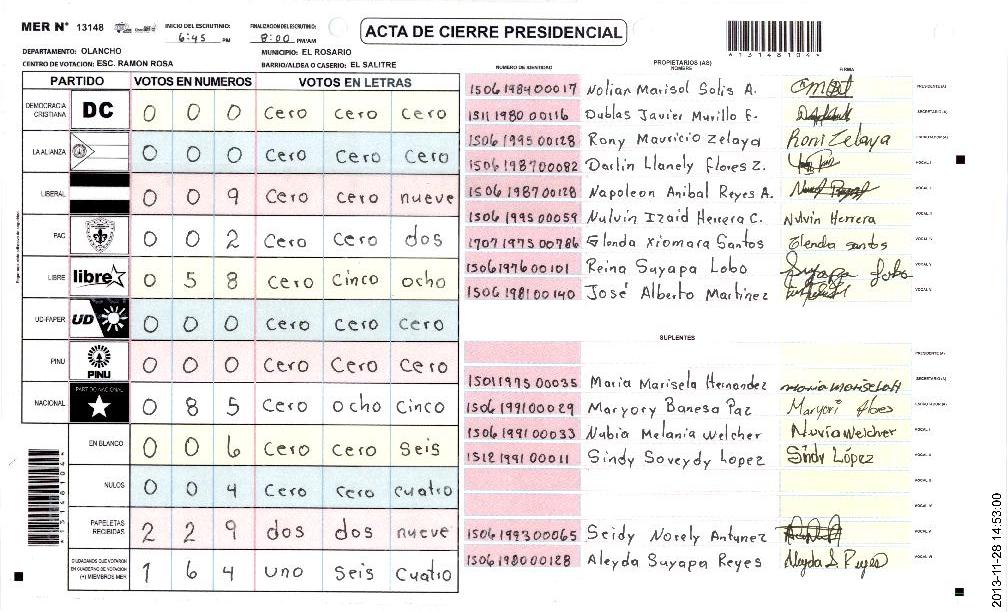 MER N° 13148
INICIO DEL ESCRUTINIO: 6:45 PM
FINALIZACION DEL ESCRUTINIO: 8:00 PM/AM
ACTA DE CIERRE PRESIDENCIAL
DEPARTAMENTO: OLANCHO
MUNICIPIO: EL ROSARIO
CENTRO DE VOTACION: ESC. RAMON ROSA
BARRIO/ALDEA O CASERIO: EL SALITRE
PARTIDO VOTOS EN NUMEROS VOTOS EN LETRAS
DEMOCRACIA CRISTIANA DC 0 0 0 Cero Cero Cero
LA ALIANZA 0 0 0 Cero Cero Cero
LIBERAL 0 0 9 Cero Cero nueve
PAC 0 0 2 Cero Cero dos
LIBRE libre 0 5 8 Cero Cinco ocho
UD-FAPER UD 0 0 0 Cero Cero Cero
PINU PINU 0 0 0 Cero Cero Cero
NACIONAL PARTIDO NACIONAL 0 8 5 Cero ocho Cinco
EN BLANCO 0 0 6 Cero Cero Seis
NULOS 0 0 4 Cero cero cuatro
PAPELETAS RECIBIDAS 2 2 9 dos dos nueve
CIUDADANOS QUE VOTARON EN CUADERNO DE VOTACION (+) MIEMBROS MER 1 6 4 uno Seis Cuatro
PROPIETARIOS (AS)
NUMERO DE IDENTIDAD NOMBRE FIRMA
1506198400017 Nolian Marisol Solis A. PRESIDENTE(A)
1511198000116 Dublas Javier Murillo F. SECRETARIO(A)
1506199500128 Rony Mauricio Zelaya Roni Zelaya ESCRUTADOR(A)
1506198700082 Darlin Llanely Flores Z. VOCAL I
1506198700128 Napoleon Anibal Reyes A.
1506199500059 Nulvin Izaid Herrera C. Nulvin Herrera
1707197500786 Glenda Xiomara Santos Glenda santos
1506197600101 Reina Suyapa Lobo Suyapa Lobo
1506198100140 José Alberto Martinez
SUPLENTES
PRESIDENTE(A)
1501197500035 Maria Marisela Hernandez SECRETARIO(A)
1506199100029 Maryory Banesa Paz Maryori ESCRUTADOR(A)
1506199100033 Nubia Melania Welcher Nuvia Welcher
1512199100011 Sindy Soveydy Lopez Sindy López
1506199300065 Seidy Norely Antunez
1506198000128 Aleyda Suyapa Reyes Aleyda S Reyes
13148104
2013-11-28 14:53:00